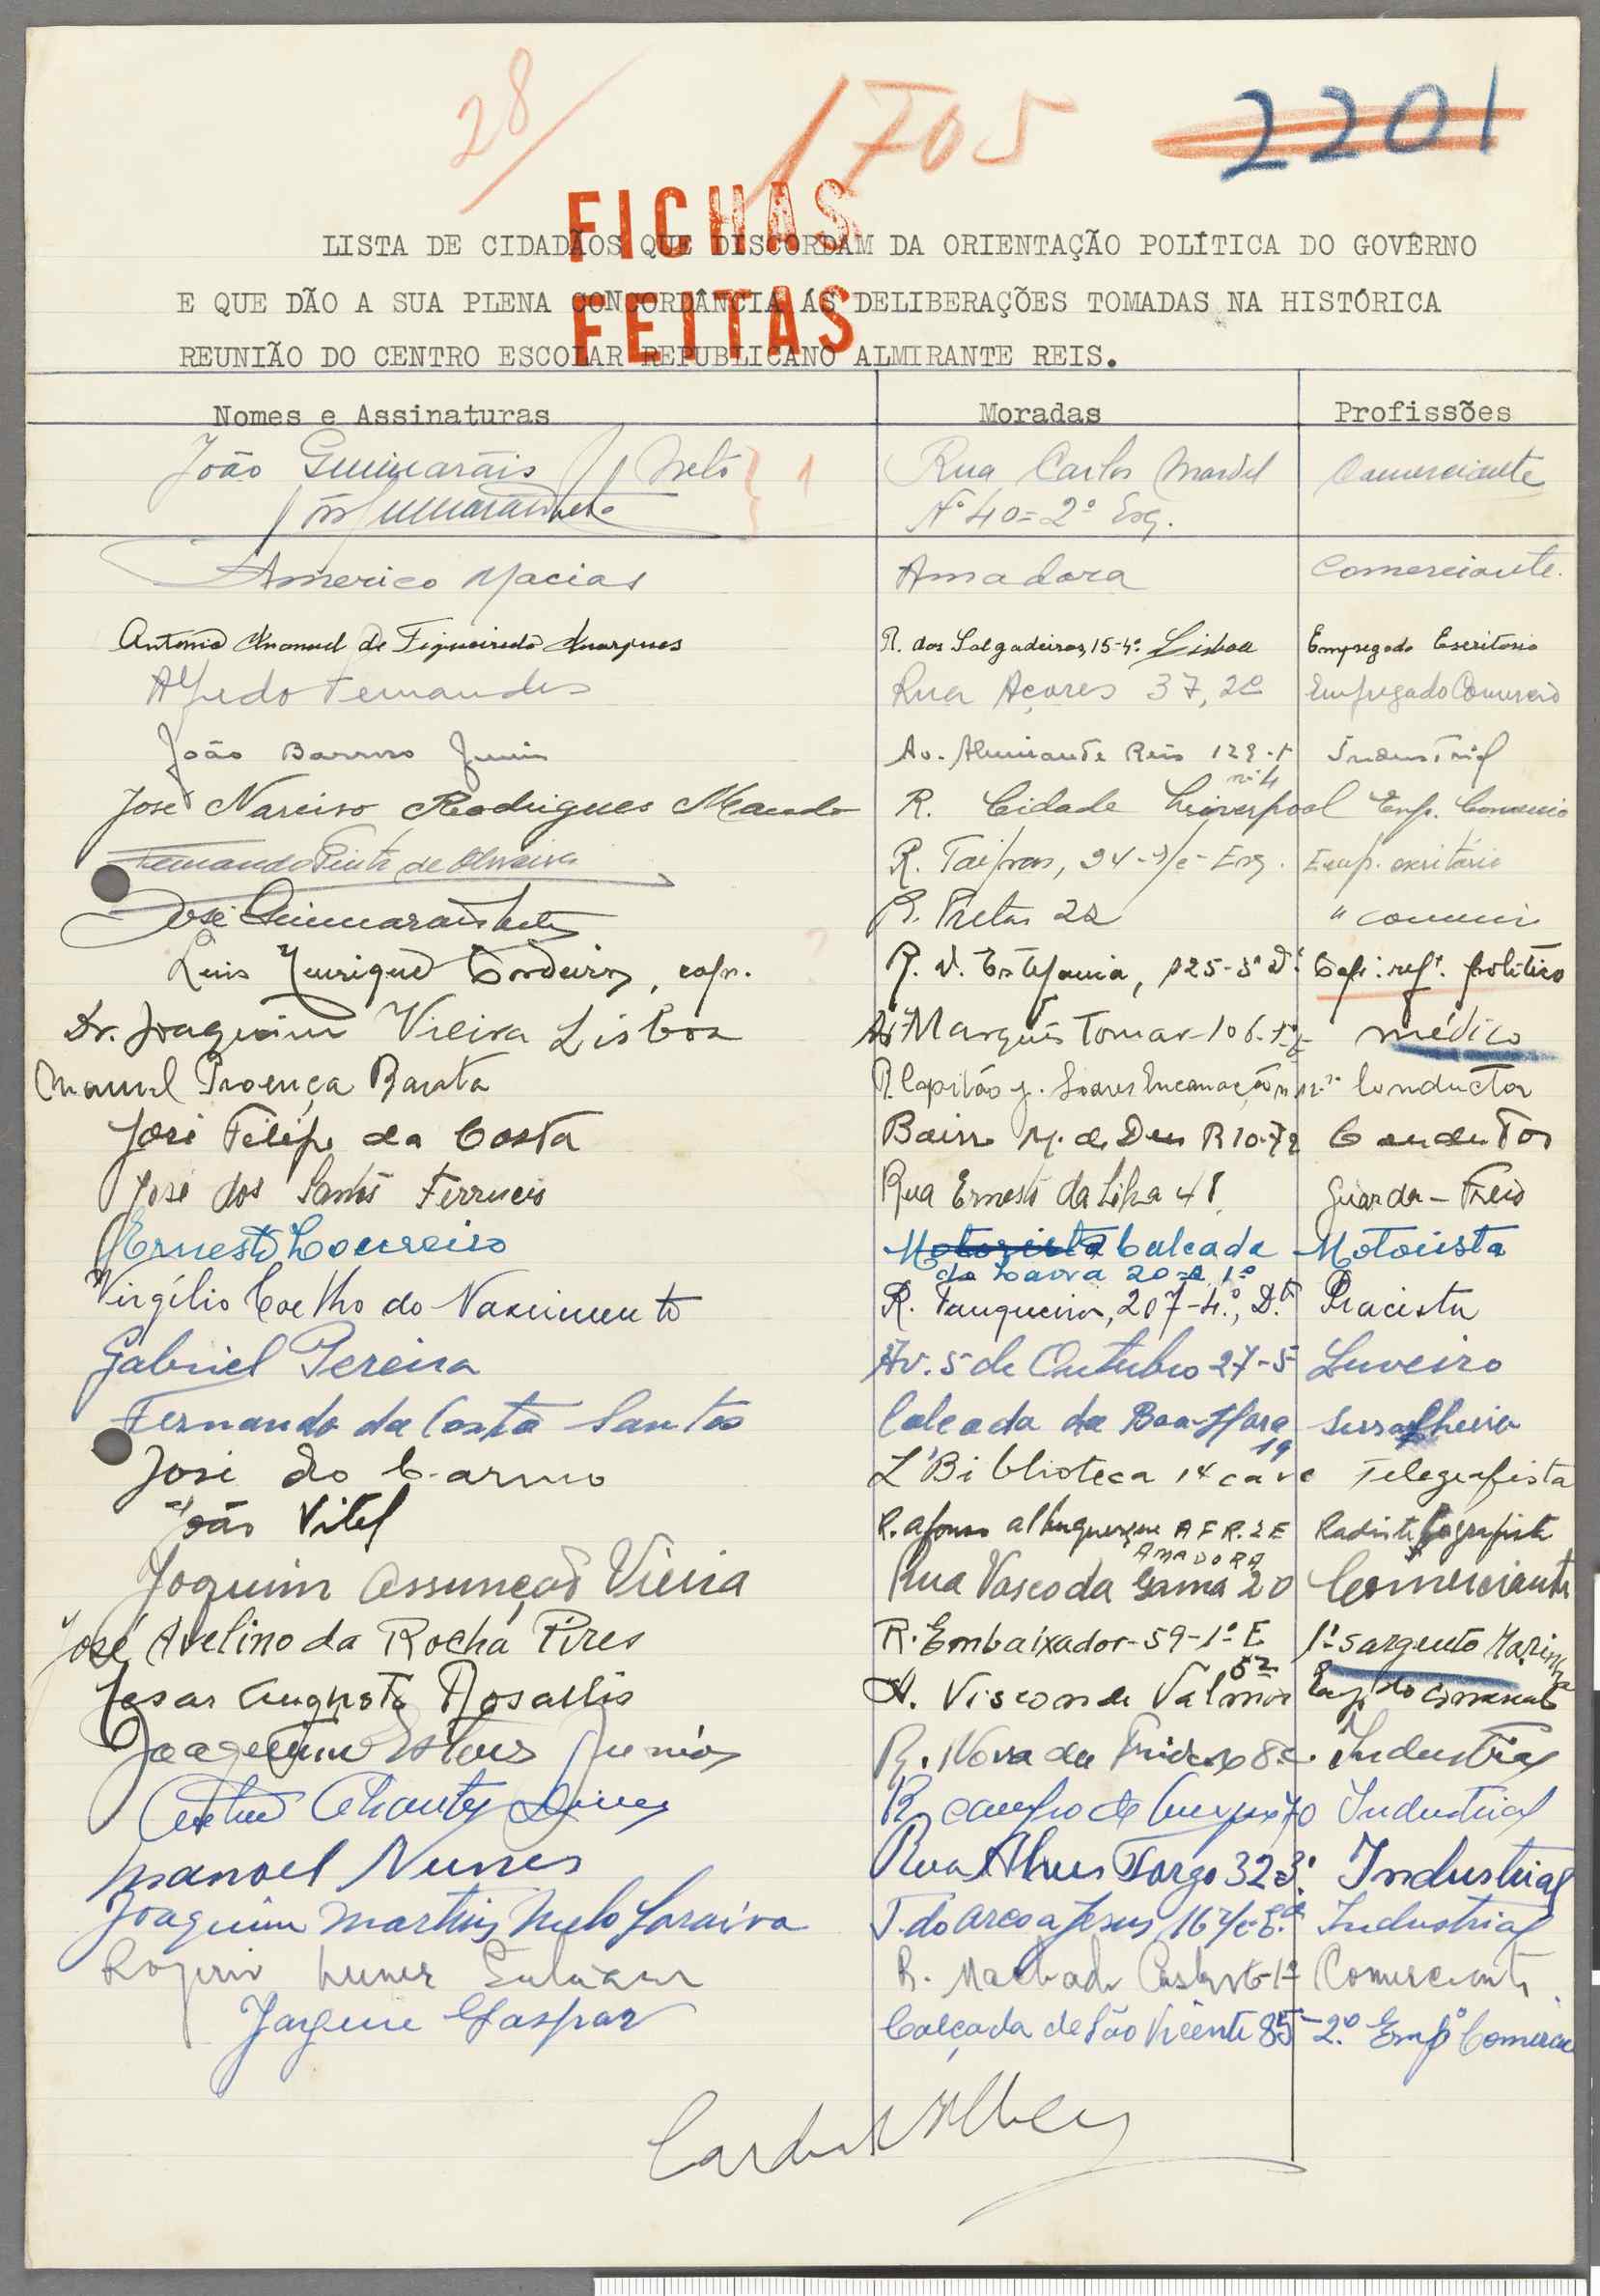 28/ 1705 2201
FICHAS
LISTA DE CIDADÃOS QUE DISCORDAM DA ORIENTAÇÃO POLÍTICA DO GOVÊRNO
E QUE DÃO A SUA PLENA CONCORDÂNCIA ÁS DELIBERAÇÕES TOMADAS NA HISTÓRICA
FEITAS
REUNIÃO DO CENTRO ESCOLAR REPUBLICANO ALMIRANTE REIS.
Nomes e Assinaturas Moradas Profissões
João Guimarãis Neto } 1 Rua Carlos Mardel Comerciante
Nº 40=2º Esq.
Americo Macias Amadora Comerciante.
Antonio Manuel de Figueiredo Marques R. dos Salgadeiras, 15-4º Lisboa Empregado Escritorio
Alfredo Fernandes Rua Açores 37, 2º Empregado Comercio
João Barros Junior Av. Almirante Reis Industrial
nº 4
José Narciso Rodrigues Macedo R. Cidade Liverpool Emp. Comercio
Fernando Pinto de Oliveira R. Taipas, 24-r/c-Esq. Emp. escritório
José Guimarãis Neto R. Pretas 22 "
Luis Henrique Cordeiro, cap. R. D. Estefania, 125-3º Dº Cap. refº. politico
Dr. Joaquim Vieira Lisboa Av Marquês Tomar-106-1º médico
Manuel Proença Barata R. Capitão Soares Encarnação Conductor
José Filipe da Costa Bairro M. de Deus R 10-72 Condutor
José dos Santos Ferrucio Rua Ernesto da Silva 41 Guarda-Freio
Ernesto Loureiro Motorista Calcada Motorista
do Lavra 20-A 1º
Virgílio Coelho do Nascimento R. Fanqueiros, 207-4.º, D.to Pracista
Gabriel Pereira Av. 5 de Outubro 27-5 Luveiro
Fernando da Costa Santos Calcada da Boa-Hora Serralheiro
19
José do Carmo L'Biblioteca 14 cave Telegrafista
João Vitel R. Afonso albuquerque A F R. 2 E Radiotelegrafista
AMADORA
Joquim Assunção Vieira Rua Vasco da Gama 20 Comerciante
José Avelino da Rocha Pires R. Embaixador-59-1º E 1º sargento Marinha
52
Cesar Augusto Rosallis A. Visconde Valmor Emp do comercio
Joaquim Esteves Junior R. Nova da Industrial
R. campo de Industrial
Manoel Nunes Rua Alves Torgo 32 3º Industrial
Joaquim Martins Melo Saraiva T. do Arco a Jesus, 16 Industrial
R. Machado Castro Comerciante
Gaspar Calçada de São Vicente 85-2º Empº Comercio